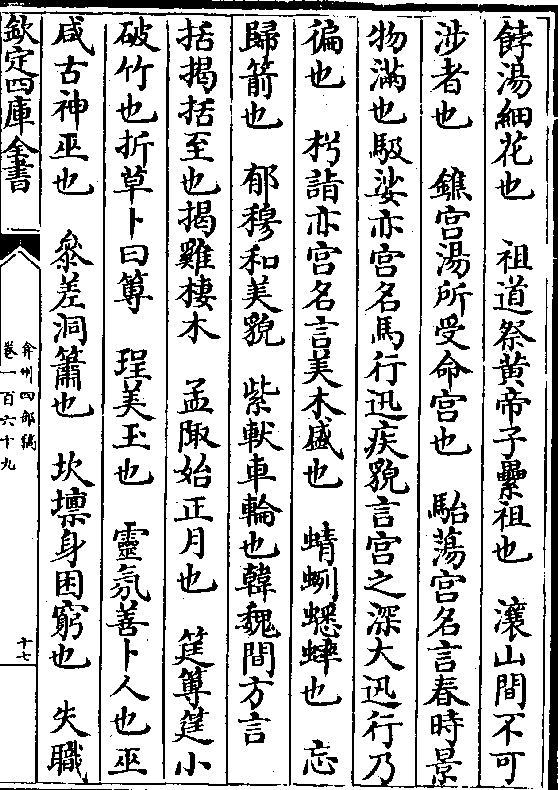 餑湯細花也　祖道祭黃帝子纍祖也　瀼山間不可
涉者也　鑣宫湯所受命宫也　駘蕩宫名言春時景
物滿也馺娑亦宫名馬行迅疾貌言宫之深大迅行乃
徧也　枍詣亦宫名言美木盛也　蜻蛚蟋蟀也　忘
歸箭也　郁穆和美貌　紫軑車輪也韓魏間方言
括揭括至也揭雞棲木　孟陬始正月也　筳篿筳小
破竹也折草卜曰篿　珵美玉也　靈氛善卜人也巫
咸古神巫也　叅差洞簫也　坎壈身困窮也　失職
欽定四庫全書
弇州四部稿
卷一百六十九
十七